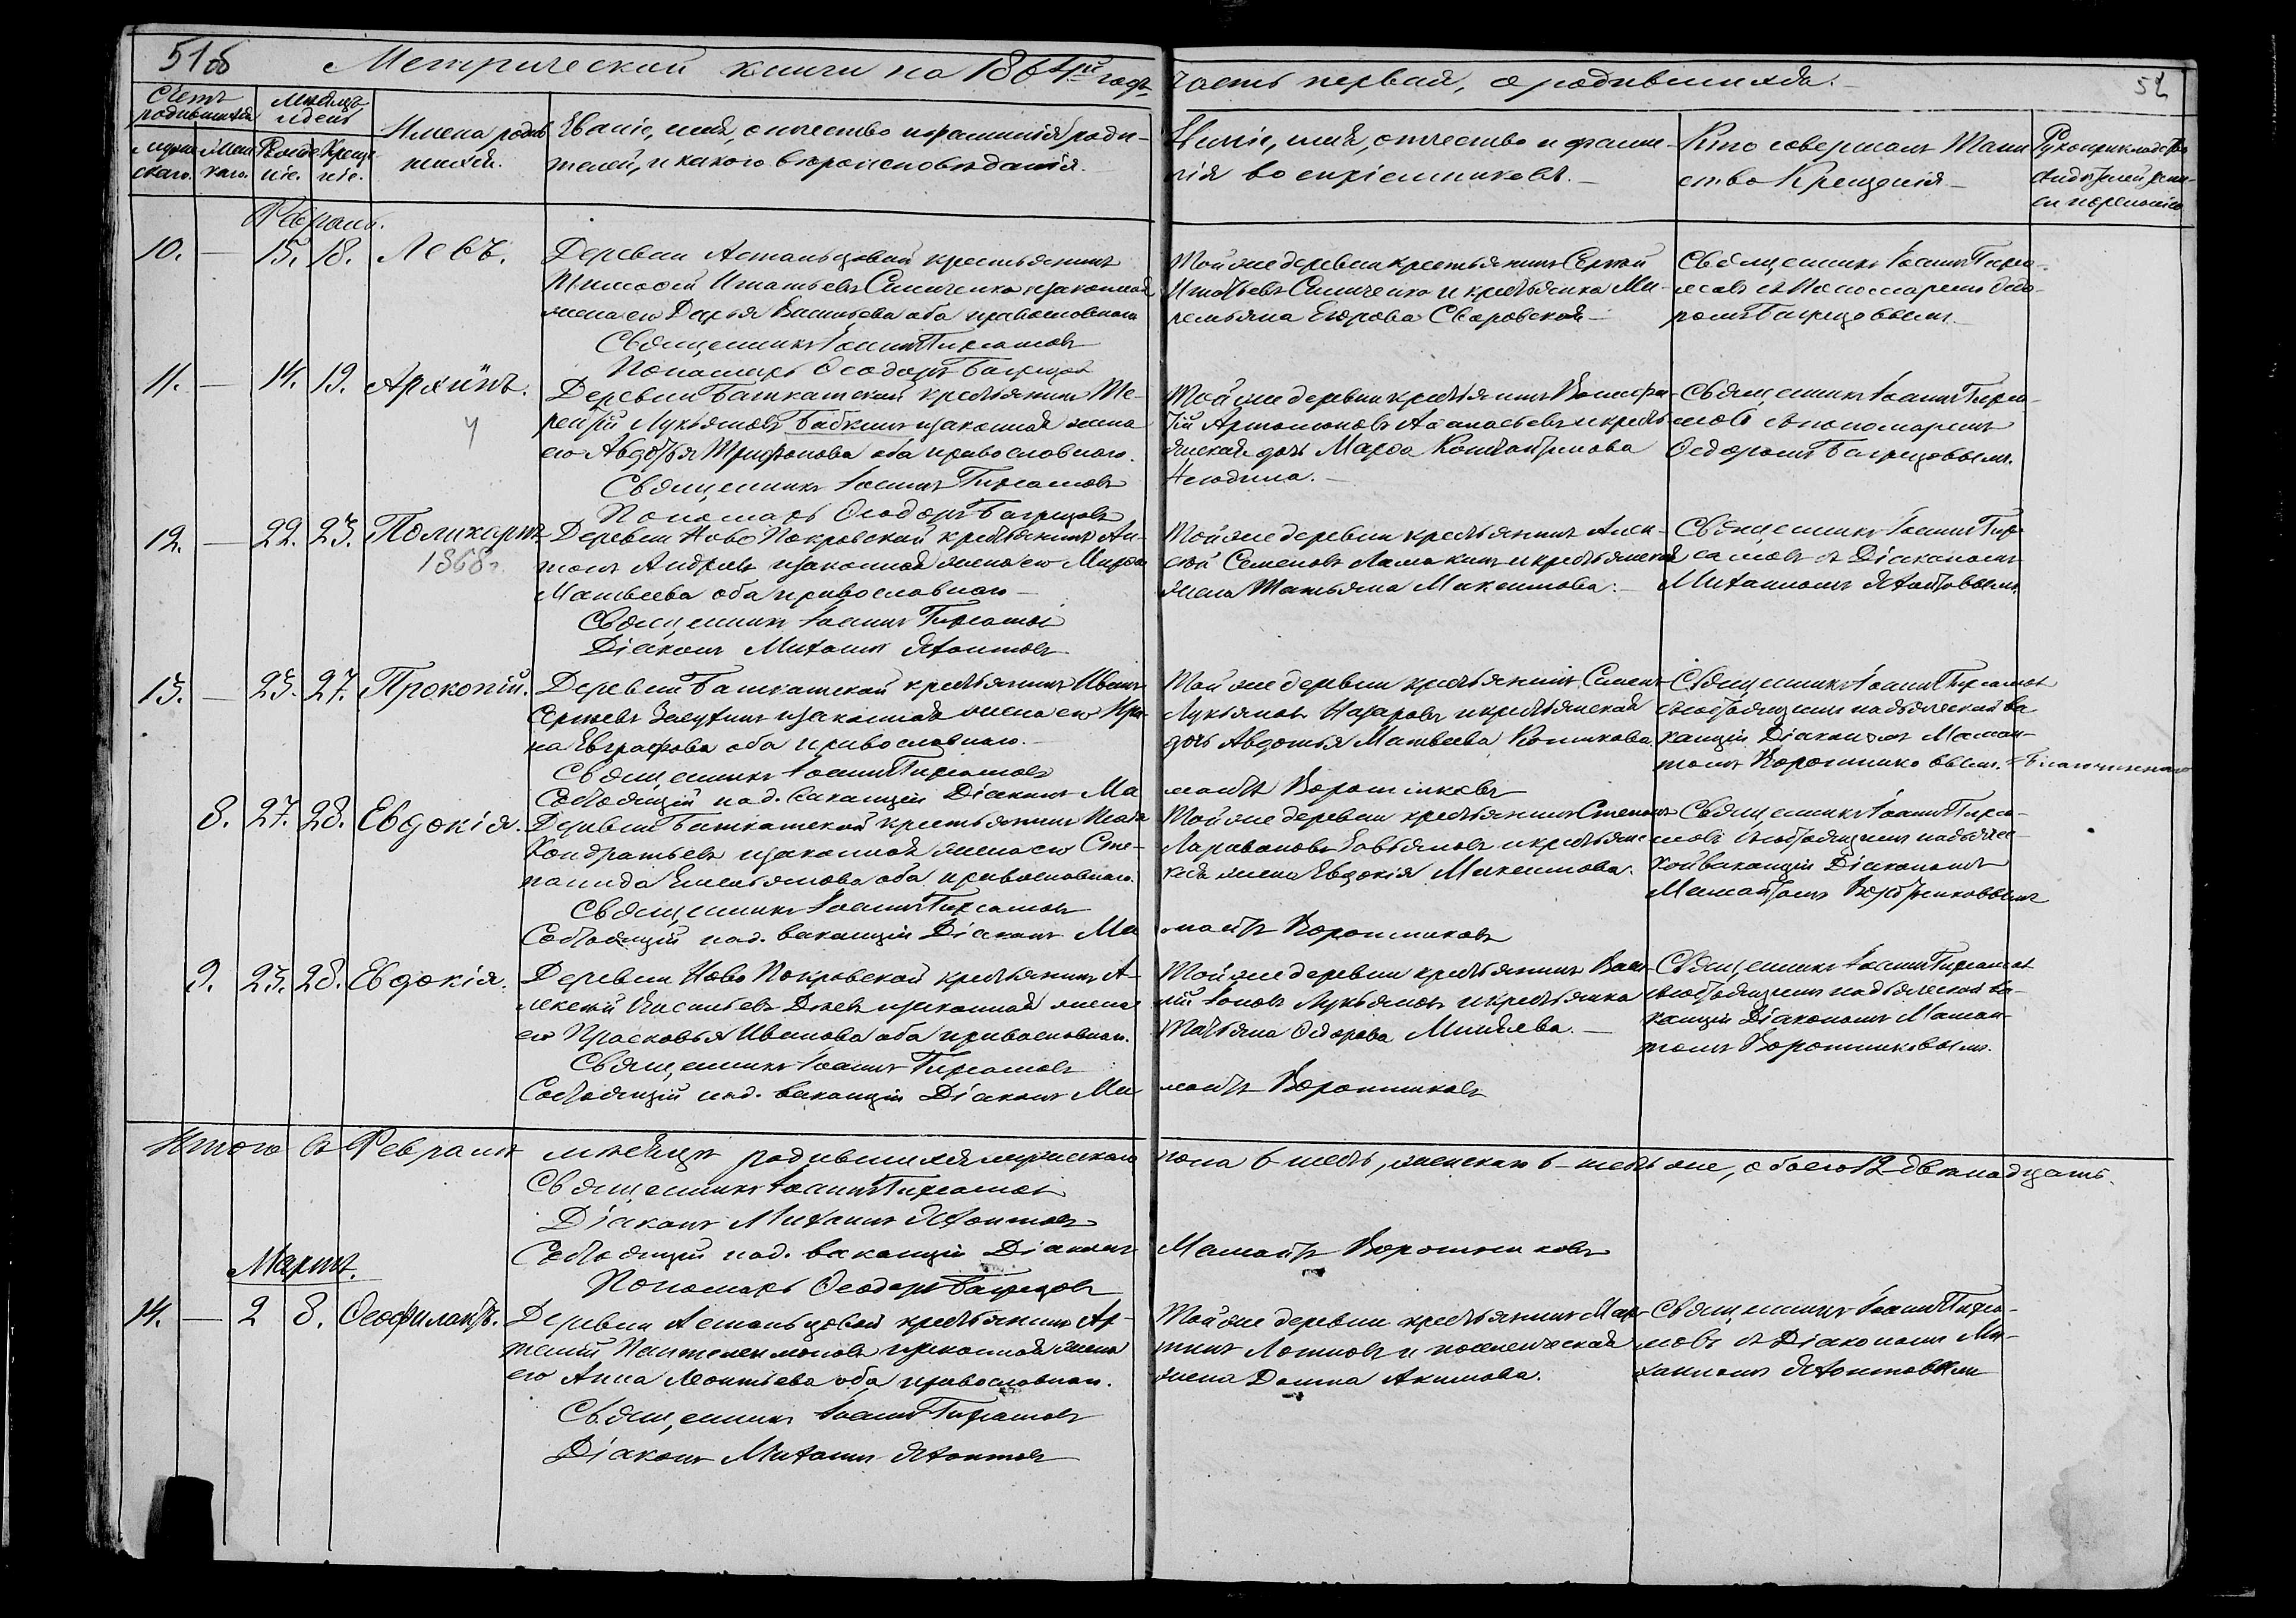 51об
Метрической книги на 1864й годъ
часть первая, о родившихся.
52
Счетъ родившихся
Мѣсяцъ и день
Имена родившихся.
Званіе, имя, отчество и фамилія роди-
телей, и какого вѣроисповѣданія.
Званіе, имя, отчество и фами-
лія воспріемниковъ.
Кто совершалъ Таин-
ство Крещенія
Рукоприкладство
свидѣтелей записи
по желанію
Мужескаго.
Женскаго.
Рожденіе.
Крещеніе.
Февраль.
10. — 15. 18. Левъ.
Деревни Астанцовой крестьянинъ
Тимофей Игнатьевъ Симченко и законная
жена его Дарья Васильева оба православнаго
Священникъ Іоаннъ
Пономарь Ѳеодоръ Багрецовъ
Той же деревни крестьянинъ Сергѣй
Игнатьевъ Симченко и крестьянка
Егорова
Священникъ Іоаннъ
съ Пономаремъ Ѳедо-
ромъ Багрецовымъ.
11. — 14. 19. Архипъ.
Деревни Башкатской крестьянинъ Те-
рентій Лукьяновъ Бабкинъ и законная жена
его Авдотья Трифонова оба православнаго.
Священникъ Іоаннъ
Пономарь Ѳеодоръ Багрецовъ
Той же деревни крестьянинъ
Артамоновъ Аѳанасьевъ и кресть-
янская дочь Марѳа Константинова
Священникъ Іоаннъ
съ пономаремъ
Ѳедоромъ Багрецовымъ.
12. — 22. 23. Поликарпъ
1868г.
Деревни Ново Покровской крестьянинъ Ан-
тонъ Андреевъ и законная жена его
Матвеева оба православнаго —
Священникъ Іоаннъ
Діаконъ Михаилъ
Той же деревни крестьянинъ Алек-
сѣй Семеновъ Ламакинъ и крестьянская
жена Татьяна Максимова. —
Священникъ Іоаннъ
съ Діакономъ
Михаиломъ
13. — 23. 27. Прокопій.
Деревни Башкатской крестьянинъ Иванъ
Сергѣевъ и законная жена его Ири-
на Евграфова оба православнаго. —
Священникъ Іоаннъ
Состоящій над. вакансіи Діаконъ Ма-
мантъ Воротниковъ
Той же деревни крестьянинъ Семенъ
Лукьяновъ Назаровъ и крестьянская
дочь Авдотья Матвеева
Священникъ Іоаннъ
съ состоящимъ на дьяческой ва-
кансіи Діакономъ Маман-
томъ Воротниковымъ.
8. 27. 28. Евдокія.
Деревни Башкатской крестьянинъ
Кондратьевъ и законная жена его Сте-
панида Емельянова оба православнаго.
Священникъ Іоаннъ
Состоящій над. вакансіи Діаконъ Ма-
мантъ Воротниковъ
Той же деревни крестьянинъ Степанъ
Ларивоновъ и крестьян-
ская жена Евдокія Максимова.
Священникъ Іоаннъ
съ состоящимъ на дьячес-
кой вакансіи Діакономъ
Мамантомъ Воротниковымъ
9. 23. 28. Евдокія.
Деревни Ново Покровской крестьянинъ А-
лексѣй Васильевъ и законная жена
его Прасковья Иванова оба православнаго.
Священникъ Іоаннъ
Состоящій над. вакансіи Діаконъ Ма-
мантъ Воротниковъ
Той же деревни крестьянинъ Васи-
лій Іоновъ Лукьяновъ и крестьянка
Татьяна Ѳедорова Миняева. —
Священникъ Іоаннъ
съ состоящимъ на дьяческой ва-
кансіи Діакономъ Маман-
томъ Воротниковымъ.
Итого въ Февралѣ мѣсяцѣ родившихся мужескаго
пола 6 шесть, женскаго 6 шесть же, обоего 12 двѣнадцать.
Священникъ Іоаннъ
Діаконъ Михаилъ
Состоящій над. вакансіи Діаконъ
Мамантъ Воротниковъ
Пономарь Ѳеодоръ Багрецовъ
Мартъ.
14. — 2 8. Ѳеофилактъ.
Деревни Астанцовой крестьянинъ Ар-
темій Пантелеимоновъ и законная жена
его Анна Леонтьева оба православнаго.
Священникъ Іоаннъ
Діаконъ Михаилъ
Той же деревни крестьянинъ Мар-
тинъ Логиновъ и
жена Домна Акимова.
Священникъ Іоаннъ
съ Діакономъ Ми-
хаиломъ